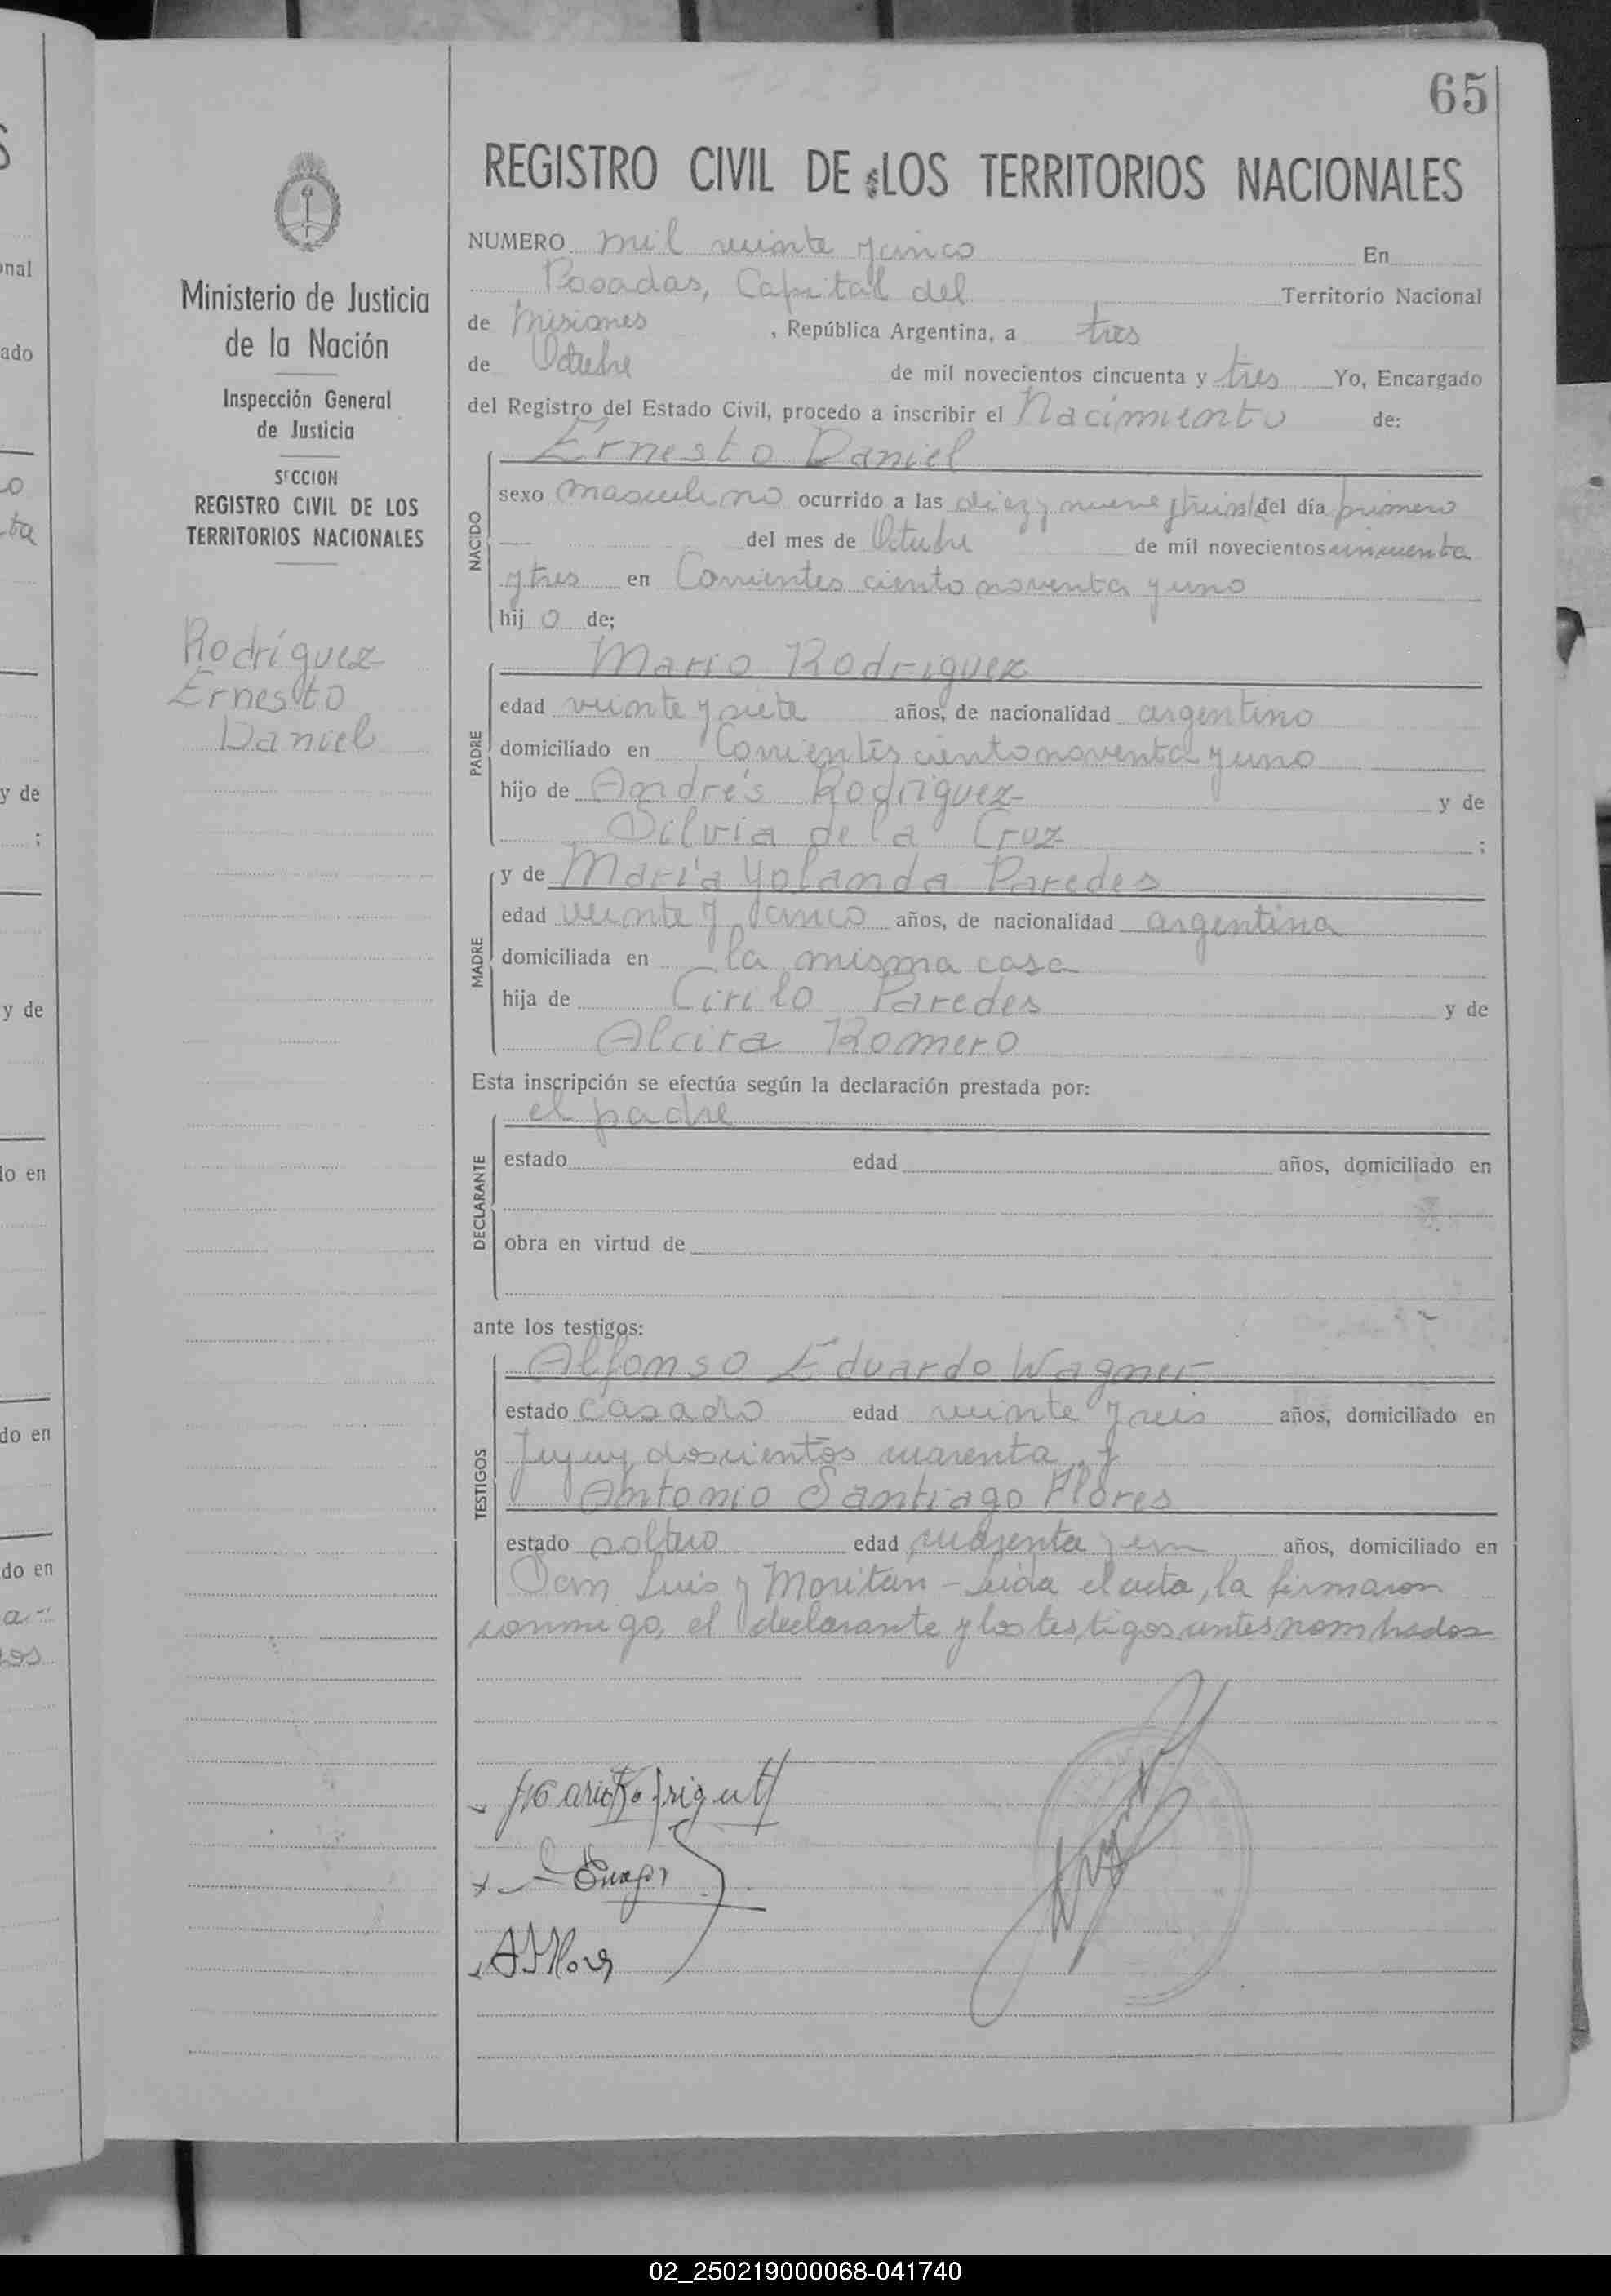 65
REGISTRO CIVIL DE LOS TERRITORIOS NACIONALES
Ministerio de Justicia
de la Nación
Inspección General
de Justicia
SECCION
REGISTRO CIVIL DE LOS
TERRITORIOS NACIONALES
Rodríguez
Ernesto
Daniel
NUMERO mil veinte y cinco En
Posadas, Capital del Territorio Nacional
de Misiones, República Argentina, a tres
de Octubre de mil novecientos cincuenta y tres Yo, Encargado
del Registro del Estado Civil, procedo a inscribir el Nacimiento de:
Ernesto Daniel
NACIDO
sexo masculino ocurrido a las diez y nueve y del día primero
del mes de Octubre de mil novecientos cincuenta
y tres en Corrientes ciento noventa y uno
hijo de;
Mario Rodriguez
PADRE
edad veinte y siete años, de nacionalidad argentino
domiciliado en Corrientes ciento noventa y uno
hijo de Andrés Rodríguez y de
Silvia de la Cruz ;
y de María Yolanda Paredes
MADRE
edad veinte y cinco años, de nacionalidad argentina
domiciliada en la misma casa
hija de Cirilo Paredes y de
Alcira Romero
Esta inscripción se efectúa según la declaración prestada por:
el padre
DECLARANTE
estado edad años, domiciliado en
obra en virtud de
ante los testigos:
Alfonso Eduardo Wagner
TESTIGOS
estado casado edad veinte y seis años, domiciliado en
Jujuy doscientos cuarenta y
Antonio Santiago Flores
estado soltero edad cuarenta y un años, domiciliado en
San Luis y Moritan - Leida el acta, la firmaron
conmigo, el declarante y los testigos antes nombrados
Mario Rodriguez
A S Flores
onal
ado
y de
;
y de
lo en
do en
do en
02_250219000068-041740